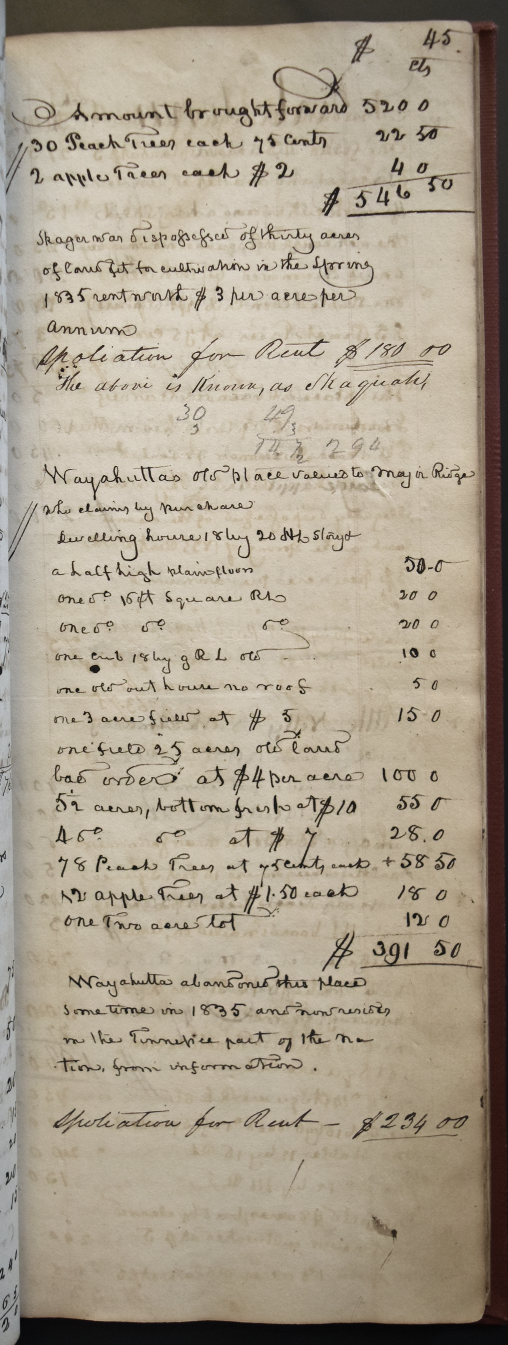 $ 45.
cts
Amount brought forward 520 0
30 Peach Trees each 75 Cents 22 50
2 apple Trees each $2 4 0
$ 546 50
Skager was dispossessed of thirty acres
of land fit for cultivation in the Spring
1835 rent worth $3 per acre per
annum
Spoliation for Rent $180 00
The above is Known, as Skaquah,
30 49
3 3
147 294
2
Wayahuttas old place valued to Major Ridge
who claims by purchase
Dwelling house 18 by 20 HL Story &
a half high plain floors 50-0
one do 16 ft Square RL 20 0
one do do do 20 0
one crib 18 by 9 RL old 10 0
one old out house no roof 5 0
one 3 acre field at $5 15 0
one field 25 acres old land
bad order at $4 per acre 100 0
5½ acres, bottom fresh at $10 55 0
4 do do at $7 28.0
78 Peach Trees at 75 cents each + 58 50
12 apple Trees at $1.50 each 18 0
one Two acre lot 12 0
$ 391 50
Wayahutta abandoned this place
some time in 1835 and now resides
in the Tinnessee part of the na
tion, from information.
Spoliation for Rent - $234 00